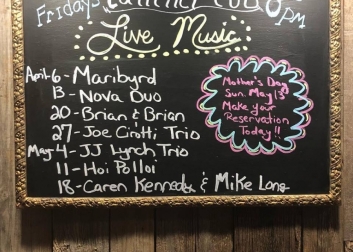 Fridays
pm
Live Music
April 6 - Maribyrd
13 - Nova Duo
20 - Brian & Brian
27 - Joe Ciotti Trio
May 4 - JJ Lynch Trio
11 - Hoi Polloi
18 - Caren Kennedy & Mike Long
Mother's Day
Sun. May 13
Make your
Reservation
Today!!